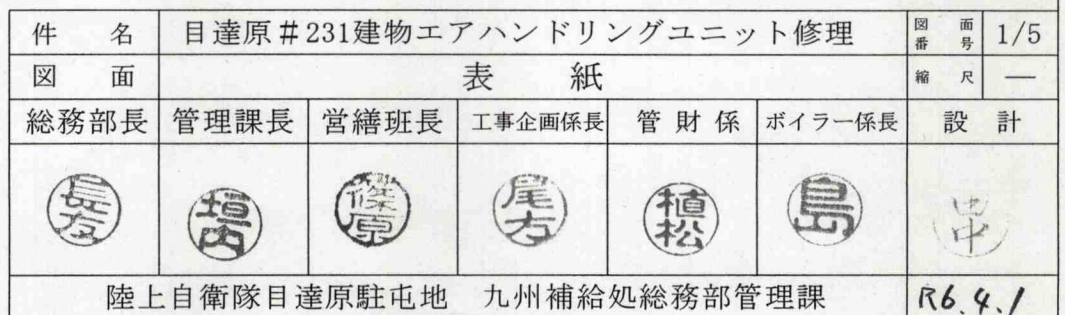 件名 目達原＃231建物エアハンドリングユニット修理 図面番号 1/5
図面 表紙 縮尺 ―
総務部長 管理課長 営繕班長 工事企画係長 管財係 ボイラー係長 設計
長友 垣内 篠原 尾方 植松 島 田中
陸上自衛隊目達原駐屯地 九州補給処総務部管理課 R6.4.1